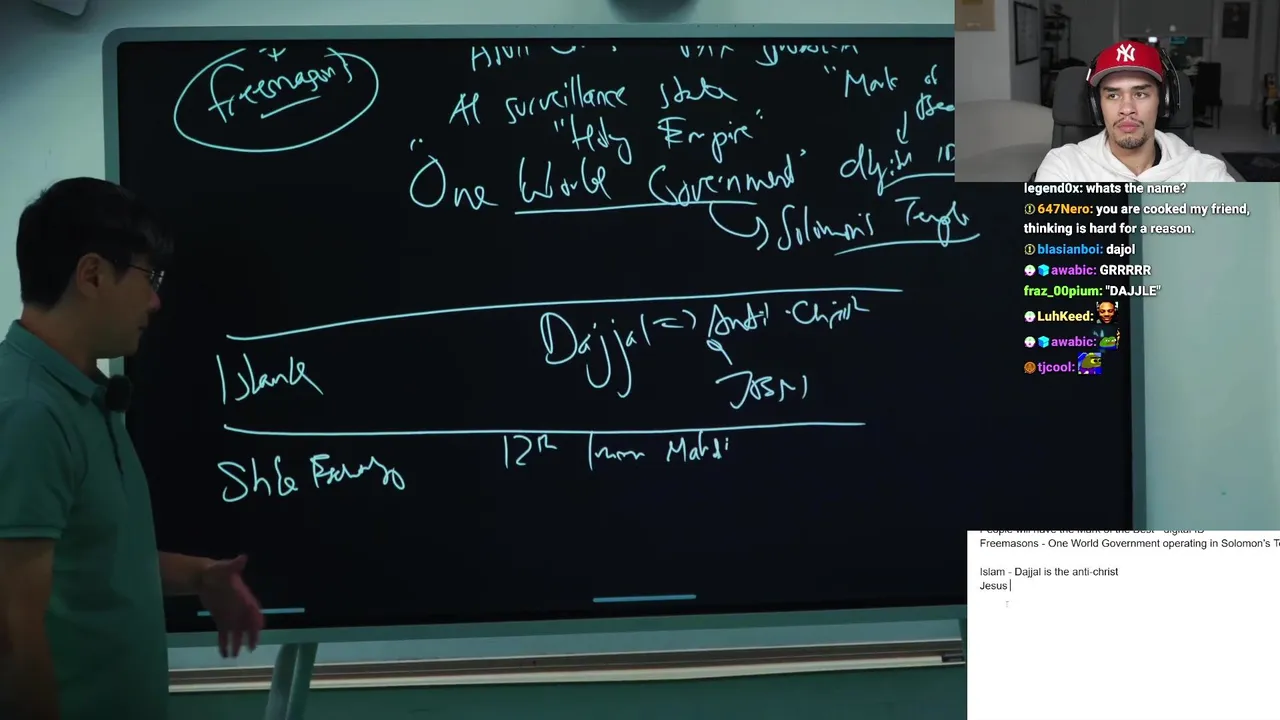 freemasons
AI surveillance state
"Mark of
"Holy Empire"
"One World Government"
digital ID
Solomon's Temple
Dajjal => Anti-Christ
Islamic
12th Imam Mahdi
Shia
legend0x: whats the name?
647Nero: you are cooked my friend,
thinking is hard for a reason.
blasianboi: dajol
awabic: GRRRRR
fraz_00pium: "DAJJLE"
LuhKeed:
awabic:
tjcool:
Freemasons - One World Government operating in Solomon's
Islam - Dajjal is the anti-christ
Jesus